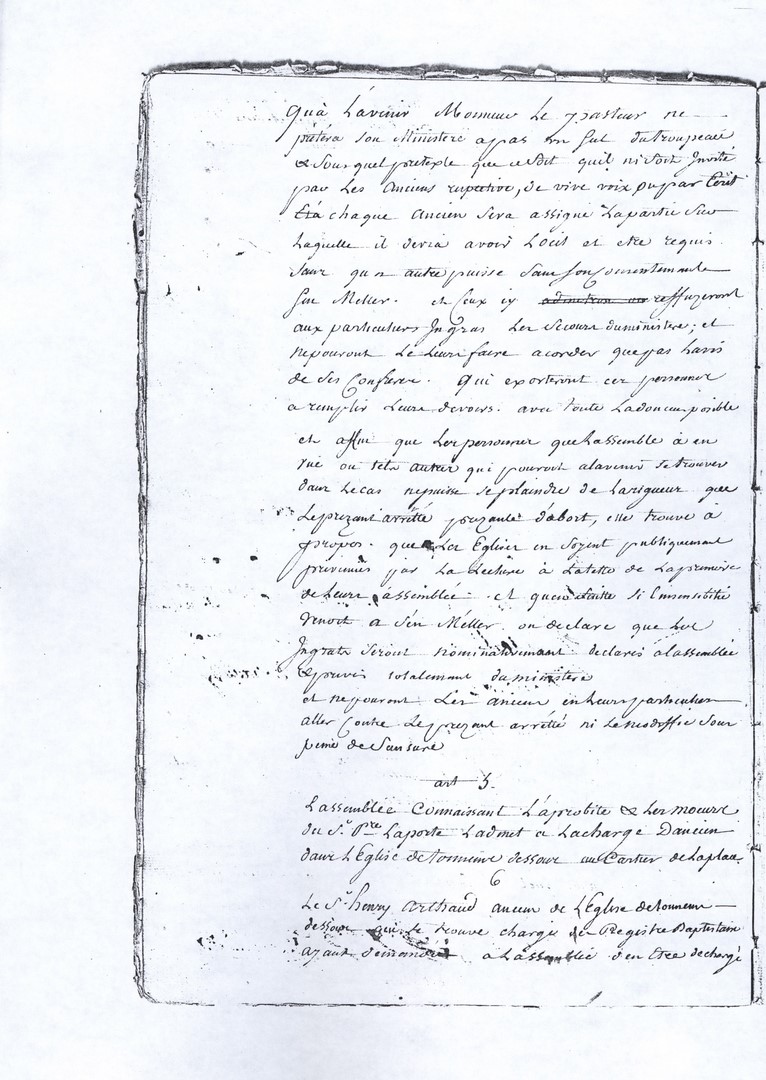 Quà Lávenir Monsieur Le pasteur ne
prétéra son Ministere apas un Sul dutroupeau
& Sous quel pretexte que ce Soit quil ni Soit Invité
par Les Anciens respective, de vive voix ou par Ecrit
chaque Ancien Sera assigné Lapartie Sur
Laquelle il devra avoir Loeil et etre requis
Sans qun autre puisse Sans Son Consentement
Sen Meller. et Ceux cy reffuzeront
aux particuliers Ingras Les Secours duministere; et
nepouront Le Leur faire acorder que par Lavis
de Ses Confrere. Qui exorteront ces personnes
a remplir Leurs devoirs. avec toute Ladouceur posible
et affin que Les personnes que Lassemblé à en
vüe ou tels autres qui pouront alavenir Setrouver
dans Lecas nepuisse Seplaindre de Larigueur que
Leprezant arrétté prezante dabort, elle trouve à
propos. que Les Eglises en Soyent publiquement
prevenues par La Lecture à Latette de Lapremiere
de Leurs assemblée. et quensuitte Si Linsensibilité
venoit a Sén Méller on declare que Les
Ingrats Seront nominativemant declarés alassemblée
& privés totalemant duministere
et nepouront Les Ancien en Leurs particulier
aller Contre Leprezant arrétté ni Lemodiffié Sous
peine de Sansure
art 5.
Lassemblée Connaissant Láprobite & Les moeurs
du Sr. Pre Laporte Ladmet a Lacharge Dancien
dans LEglise detonneins dessous au Cartier de Laplace
6
Le Sr. henry Arthaud ancien de LEglise detonneins
dessous qui Se trouve chargé des Registre Baptistaire
ayant demandé a Lassemblée den Etre dechargé